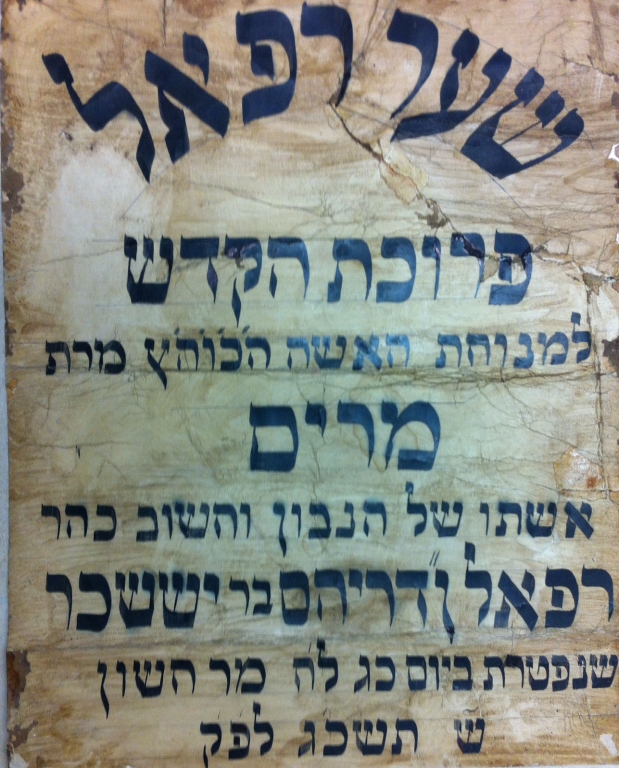 שער רפאל
פרוכת הקדש
למנוחת האשה הכוהץ מרת
מרים
אשתו של הנבון והשוב כהר
רפאל ן״דריהם בר יששכר
שנפטרת ביום כג לח מר חשון
ש תשכג לפק